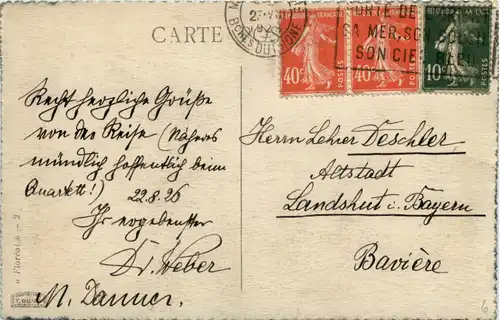 CARTE
PORTE DE
SA MER, SON
SON CIEL BLEU
40c
POSTES
40c
POSTES
10c
POSTES
Recht herzliche Grüße
von der Reise (Näheres
mündlich hoffentlich beim
Quartett!) 22.8.26
Ihr ergebenster
Dr. Weber
M. Danner.
Herrn Lehrer Deschler,
Altstadt
Landshut i. Bayern
Bavière
6